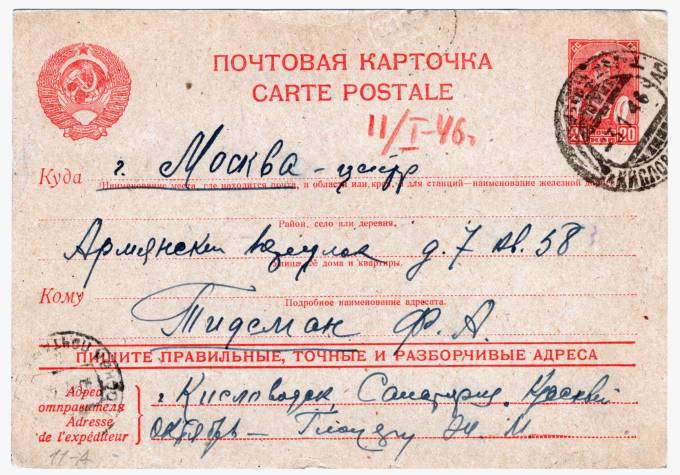 ПОЧТОВАЯ КАРТОЧКА
CARTE POSTALE
11/I-46г
20 20
КИСЛОВ
Куда г. Москва - центр
Наименование места, где находится почта, и области или края, а для станций—наименование железной
Район, село или деревня.
Армянский переулок д. 7 кв. 58
Улица, № дома и квартиры.
Кому
Подробное наименование адресата.
Тидеман Ф. А.
ПИШИТЕ ПРАВИЛЬНЫЕ, ТОЧНЫЕ И РАЗБОРЧИВЫЕ АДРЕСА
Адрес отправителя
Adresse de l'expéditeur
г. Кисловодск Санатория
Октябрь -
11-А